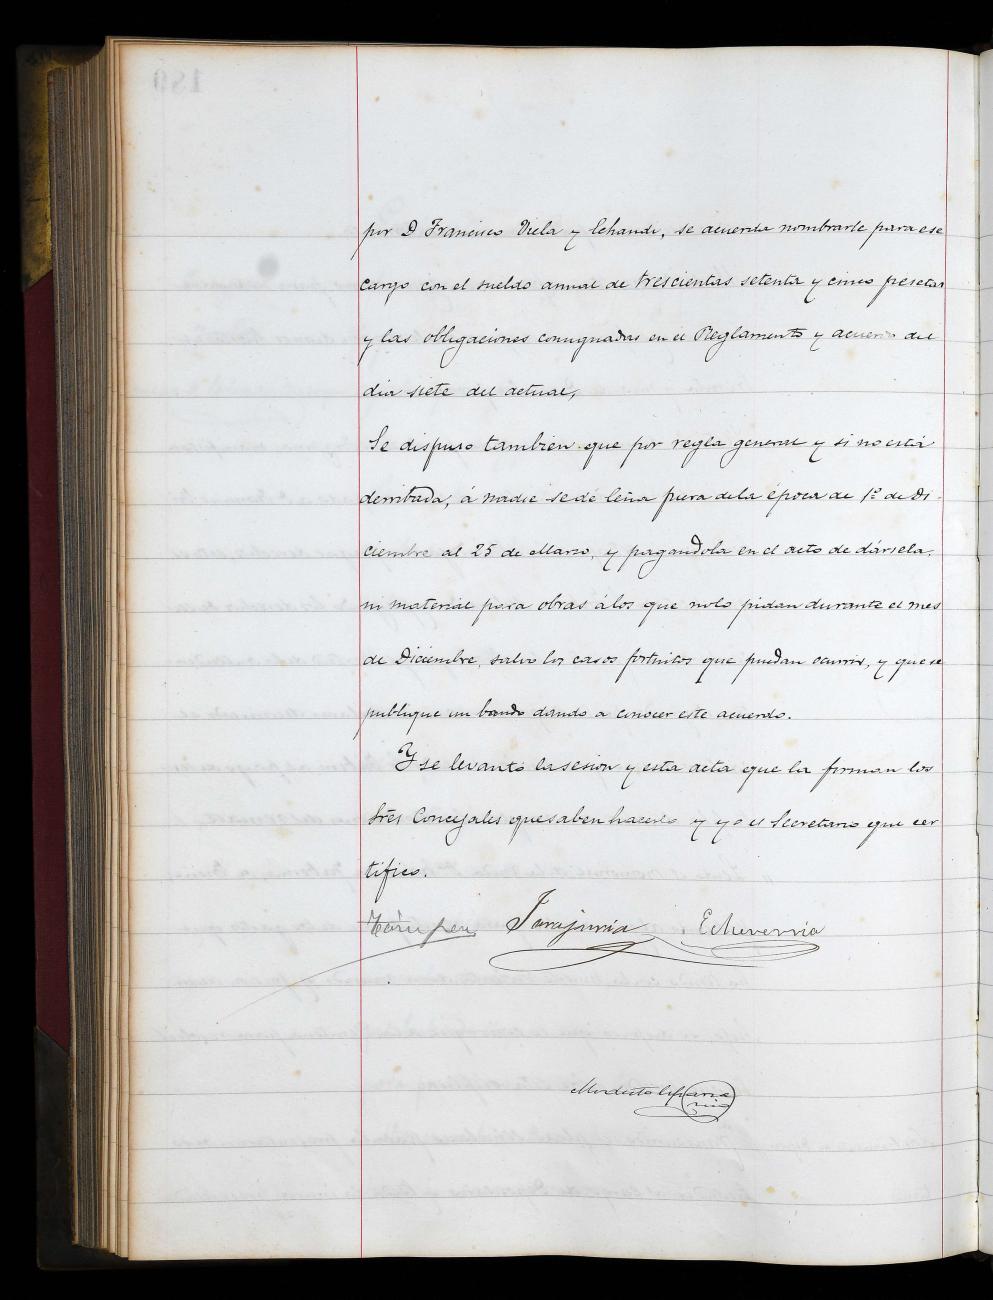 por D Francisco Viela y Echandi, se acuerda nombrarle para ese
cargo con el sueldo anual de trescientas setenta y cinco pesetas
y las obligaciones consignadas en el Reglamento y acuerdo del
dia siete del actual,
Se dispuso tambien que por regla general y si no está
derribada, á nadie se dé leña fuera de la época de 1º de Di-
ciembre al 25 de Marzo, y pagandola en el acto de dársela,
ni material para obras á los que no lo pidan durante el mes
de Diciembre, salvo los casos fortuitos que puedan ocurrir, y que se
publique un bando dando a conocer este acuerdo.
Y se levantó la sesion y esta acta que la firman los
tres Concejales que saben hacerlo y yo el Secretario que cer
tifico.
Echeverria
Modesto